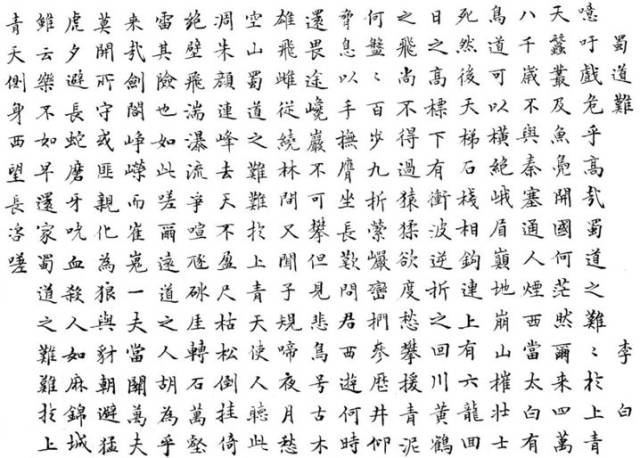 蜀道難 李白
噫吁戲危乎高哉蜀道之難〻於上青
天蠶叢及魚鳧開國何茫然爾来四萬
八千歲不與秦塞通人煙西當太白有
鳥道可以橫絕峨眉巔地崩山摧壯士
死然後天梯石棧相鉤連上有六龍回
日之高標下有衝波逆折之回川黄鶴
之飛尚不得過猿猱欲度愁攀援青泥
何盤〻百步九折縈巖巒捫參歷井仰
脅息以手撫膺坐長歎問君西遊何時
還畏途巉巖不可攀但見悲鳥号古木
雄飛雌從繞林間又聞子規啼夜月愁
空山蜀道之難難於上青天使人聽此
凋朱顏連峰去天不盈尺枯松倒挂倚
絕壁飛湍瀑流爭喧豗砯厓轉石萬壑
雷其險也如此嗟爾遠道之人胡為乎
来哉劍閣崢嶸而崔嵬一夫當關萬夫
莫開所守或匪親化為狼與豺朝避猛
虎夕避長蛇磨牙吮血殺人如麻錦城
雖云樂不如早還家蜀道之難難於上
青天側身西望長咨嗟